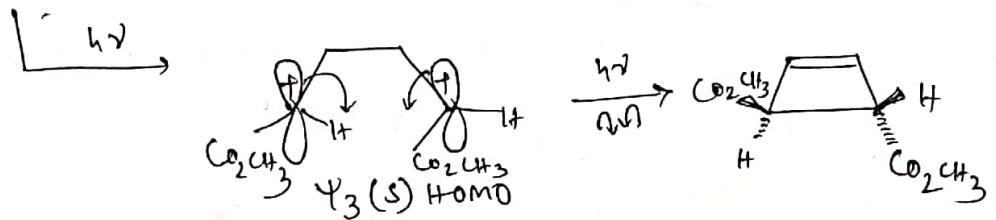 hν
+
+
H
H
CO₂CH₃
CO₂CH₃
Ψ₃ (S) HOMO
hν
CO₂CH₃
H
H
CO₂CH₃